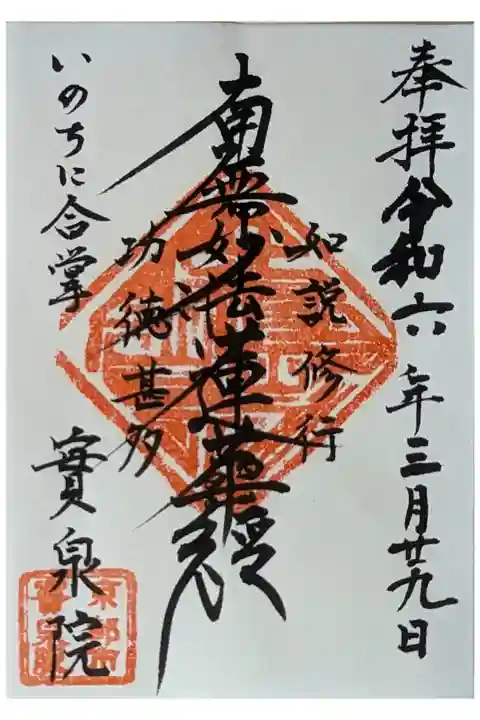 奉拝 令和六年三月廿九日
如説修行
南無妙法蓮華経
功徳甚多
いのちに合掌
實泉院